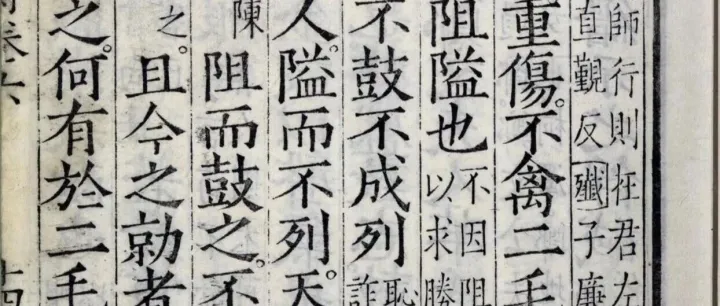 師行則在君左
直覲反殲子廉
重傷。不禽二毛
阻隘也不因阻
以求勝
不鼓不成列恥
詐
人。隘而不列。天
陳阻而鼓之。不
之。且今之勍者
之。何有於二毛
卷六